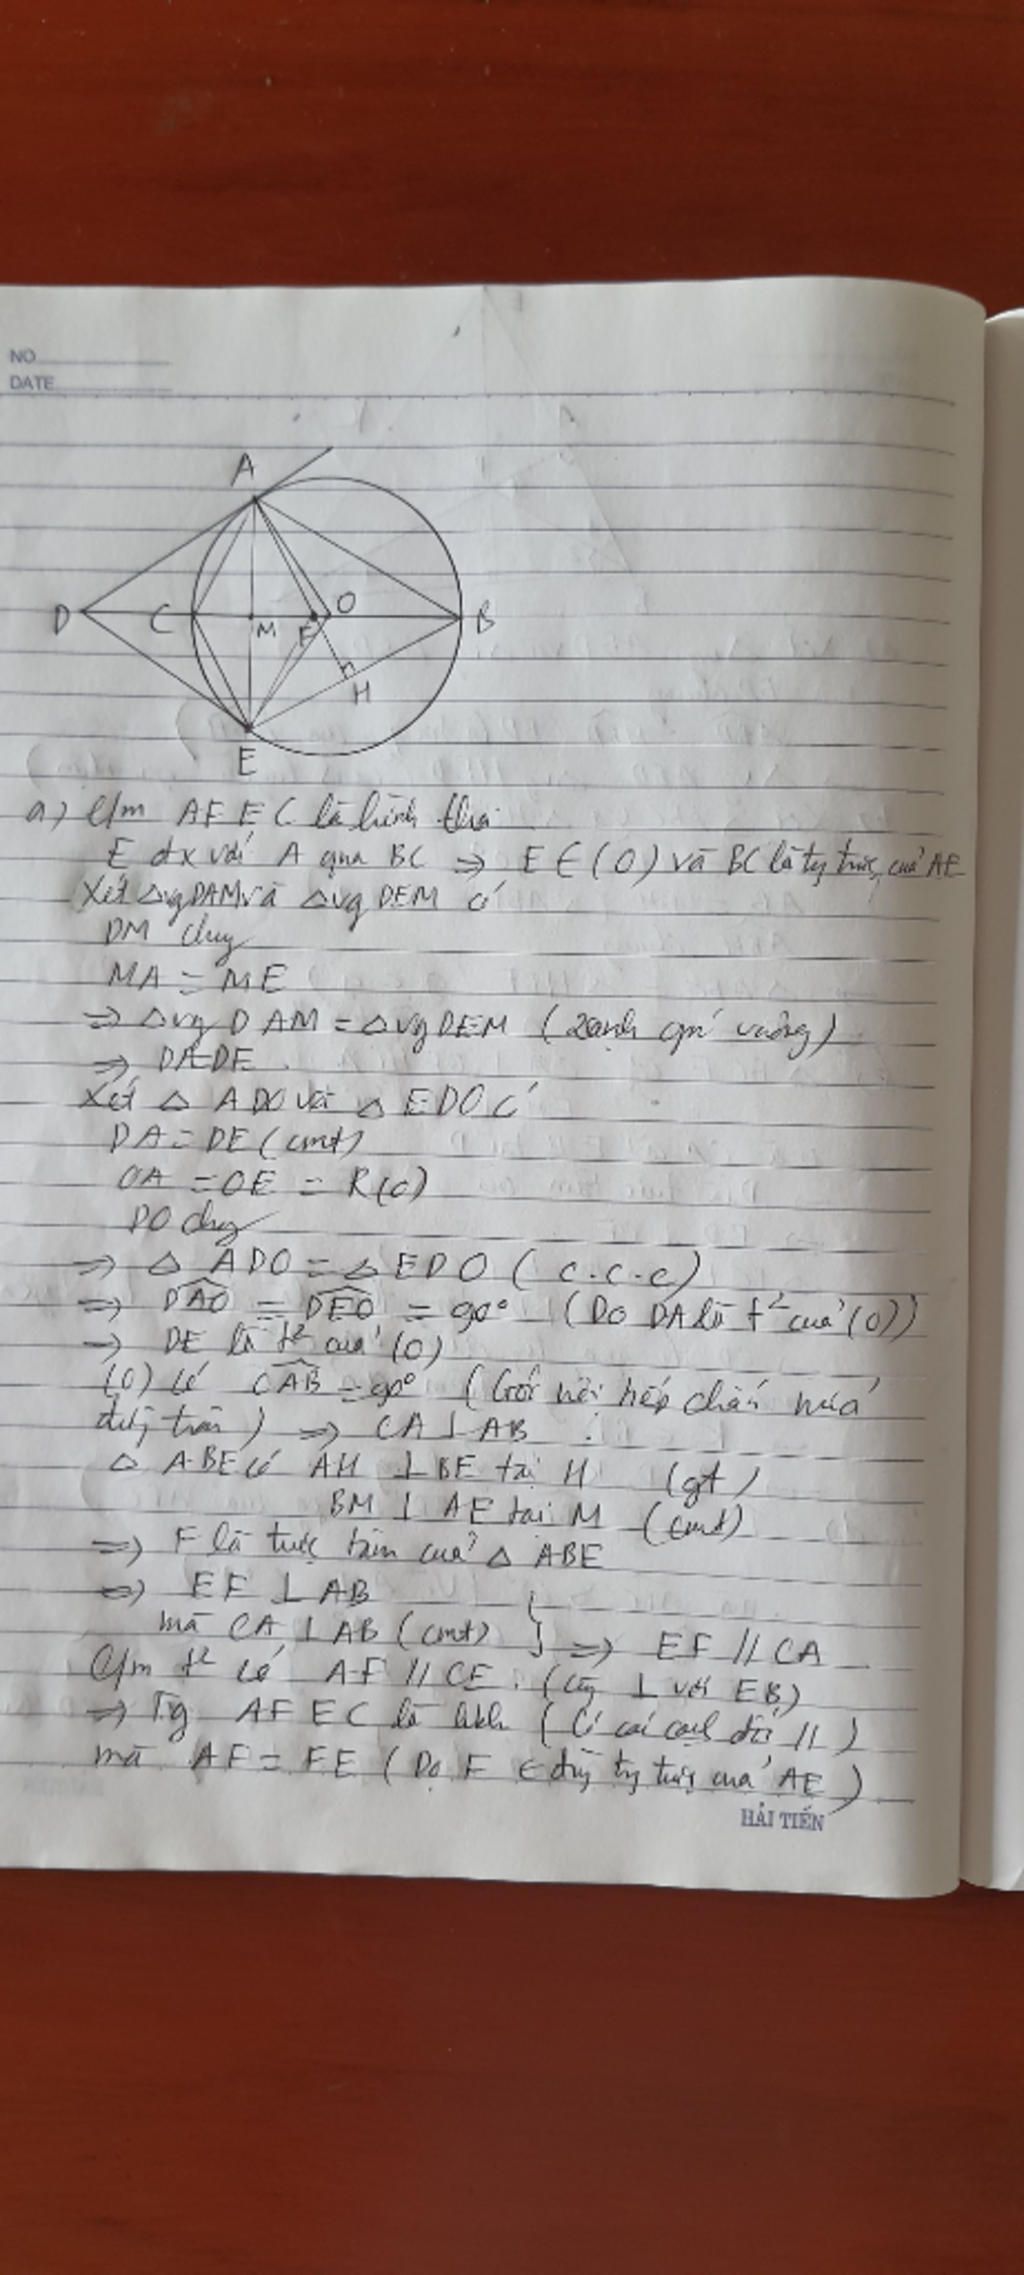 NO
DATE
A
D C M F O B
H
E
a) C/m AFEC là hình thoi
E đx với A qua BC => E ∈ (O) và BC là tg trực của AE
Xét △vg DAM và △vg DEM có
DM chg
MA = ME
=> △vg DAM = △vg DEM (2 cạnh góc vuông)
=> DA=DE
Xét △ ADO và △ EDO có
DA = DE (cmt)
OA = OE = R(O)
DO chg
=> △ ADO = △ EDO (c.c.c)
=> DAO = DEO = 90° (Do DA là t² của (O))
=> DE là t² của (O)
(O) có CAB = 90° (Góc nội tiếp chắn nửa
đường tròn) => CA ⊥ AB
△ ABE có AH ⊥ BE tại H (gt)
BM ⊥ AE tại M (cmt)
=> F là trực tâm của △ ABE
=> EF ⊥ AB
mà CA ⊥ AB (cmt) } => EF // CA
C/m t² có AF // CE (cùng ⊥ với EB)
=> Tg AFEC là hbh (Có các cạnh đối //)
mà AF = FE (Do F ∈ đg tg trực của AE)
HẢI TIẾN